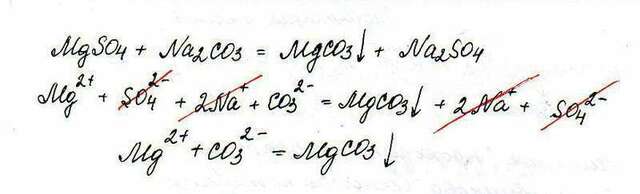 MgSO₄ + Na₂CO₃ = MgCO₃↓ + Na₂SO₄
Mg²⁺ + SO₄²⁻ + 2Na⁺ + CO₃²⁻ = MgCO₃↓ + 2Na⁺ + SO₄²⁻
Mg²⁺ + CO₃²⁻ = MgCO₃↓